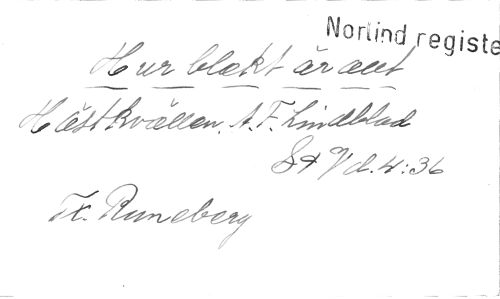 Norlind registe
Hur blekt är allt
Höstkvällen. A. F. Lindblad
d. 4:36
Tx. Runeberg